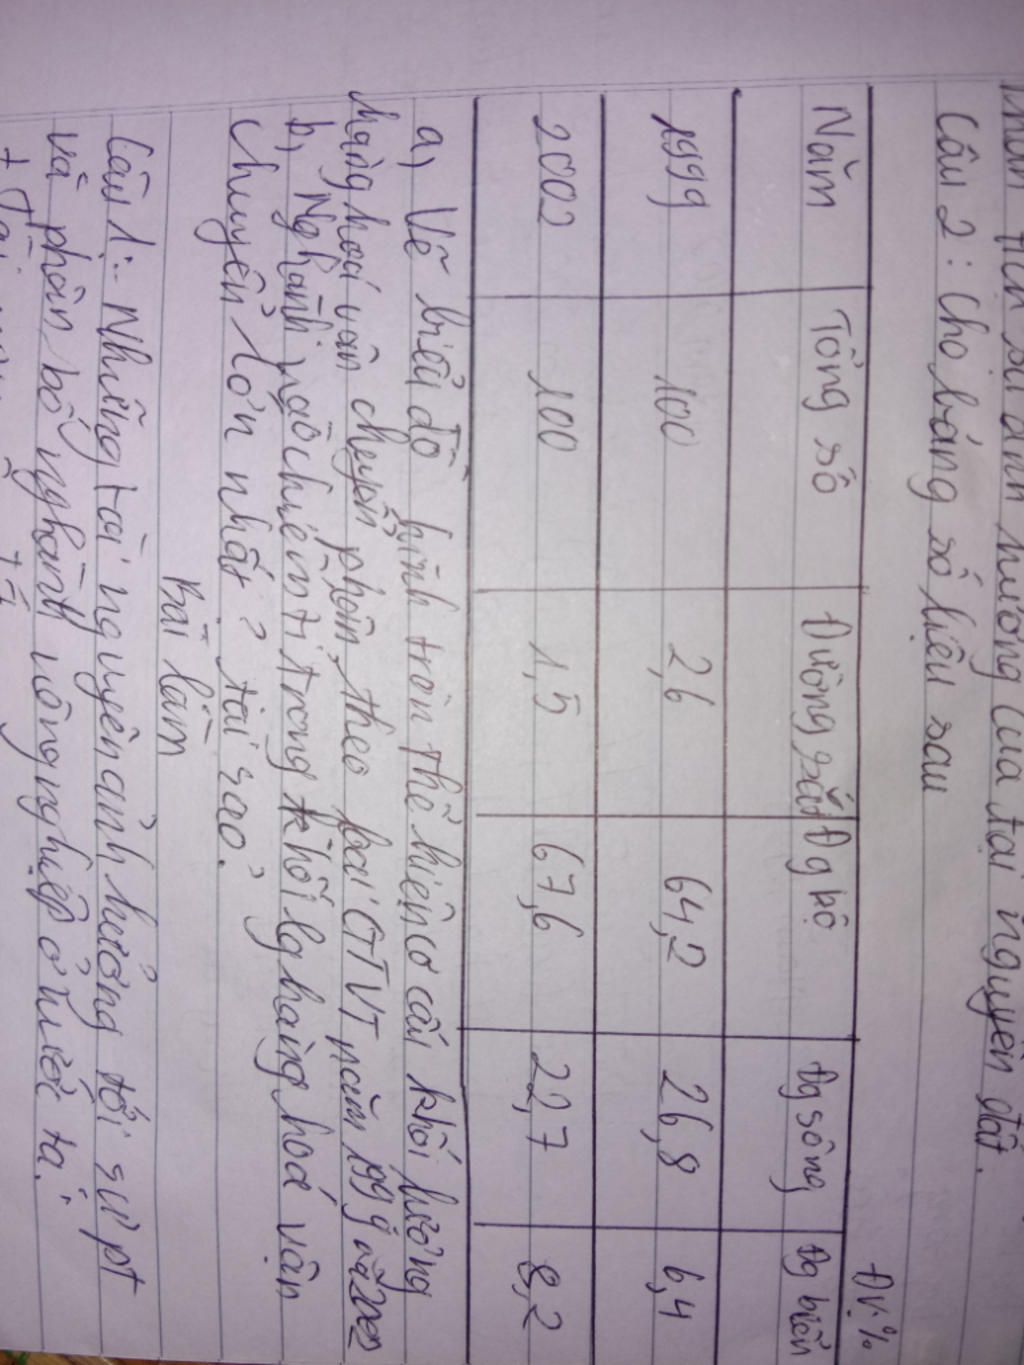 ảnh hưởng của tài nguyên đất.
Câu 2: Cho bảng số liệu sau
ĐV:%
Năm Tổng số Đường sắt Đg bộ Đg sông Đg biển
1999 100 2,6 64,2 26,8 6,4
2002 100 1,5 67,6 22,7 8,2
a, Vẽ biểu đồ hình tròn thể hiện cơ cấu khối lượng
hàng hoá vân chuyển phân theo loại GTVT năm 1999 và 2002
b, Nghành nào chiếm tỉ trong khối lg hàng hoá vận
chuyển lớn nhất? tại sao?
Bài làm
Câu 1:- Những tài nguyên ảnh hưởng tới sự pt
và phân bố nghành nông nghiệp ở nước ta: